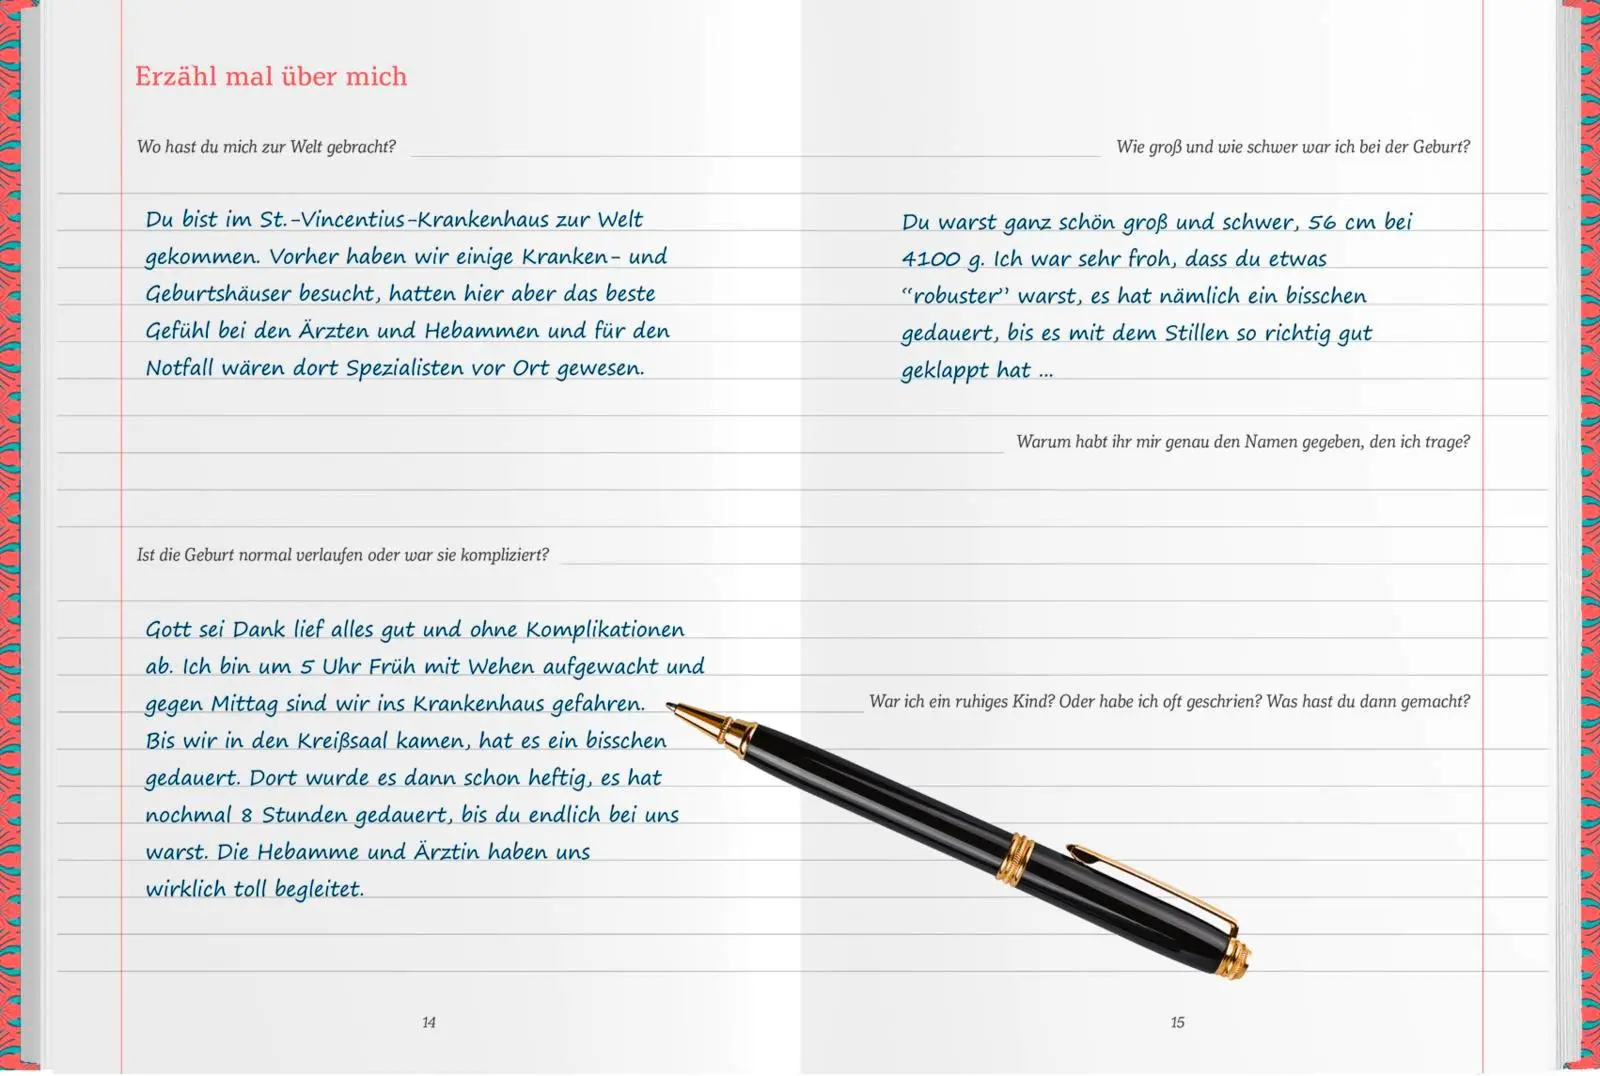 Erzähl mal über mich
Wo hast du mich zur Welt gebracht?
Du bist im St.-Vincentius-Krankenhaus zur Welt
gekommen. Vorher haben wir einige Kranken- und
Geburtshäuser besucht, hatten hier aber das beste
Gefühl bei den Ärzten und Hebammen und für den
Notfall wären dort Spezialisten vor Ort gewesen.
Ist die Geburt normal verlaufen oder war sie kompliziert?
Gott sei Dank lief alles gut und ohne Komplikationen
ab. Ich bin um 5 Uhr Früh mit Wehen aufgewacht und
gegen Mittag sind wir ins Krankenhaus gefahren.
Bis wir in den Kreißsaal kamen, hat es ein bisschen
gedauert. Dort wurde es dann schon heftig, es hat
nochmal 8 Stunden gedauert, bis du endlich bei uns
warst. Die Hebamme und Ärztin haben uns
wirklich toll begleitet.
14
Wie groß und wie schwer war ich bei der Geburt?
Du warst ganz schön groß und schwer, 56 cm bei
4100 g. Ich war sehr froh, dass du etwas
“robuster” warst, es hat nämlich ein bisschen
gedauert, bis es mit dem Stillen so richtig gut
geklappt hat ...
Warum habt ihr mir genau den Namen gegeben, den ich trage?
War ich ein ruhiges Kind? Oder habe ich oft geschrien? Was hast du dann gemacht?
15